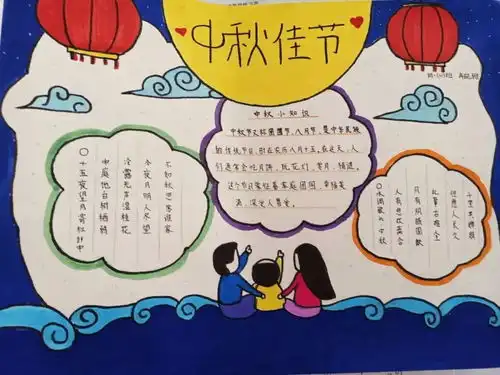 中秋佳节
中秋小知识
中秋节又称团圆节、八月节,是中华民族
的传统节日,时在农历八月十五,在这天,人
们通常会吃月饼、玩花灯、赏月、猜谜。
这个节日象征着家庭团圆、幸福美
满,深受人喜爱。
十五夜望月寄杜郎中
中庭地白树栖鸦
冷露无声湿桂花
今夜月明人尽望
不知秋思落谁家
水调歌头·中秋
人有悲欢离合
月有阴晴圆缺
此事古难全
但愿人长久
千里共婵娟